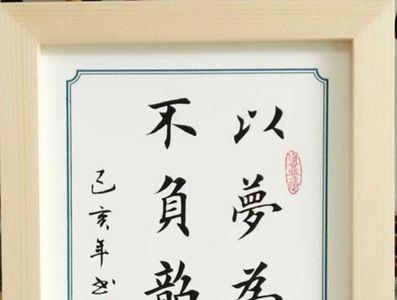 以夢為
不負韶
己亥年書